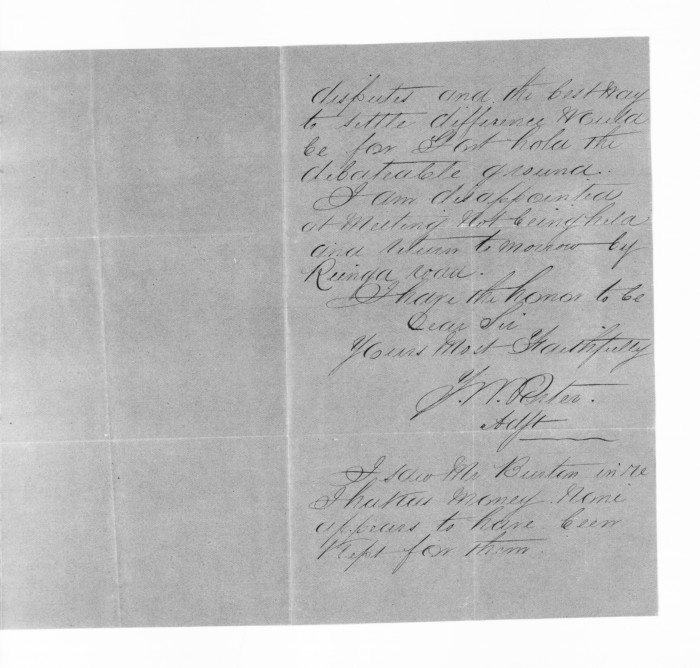 disputes and the best way
to settle difference would
be for Govt hold the
debateable ground.
I am disappointed
at Meeting Not being held
and return to morrow by
road.
I have the honor to be
Dear Sir
Yours Most Faithfully
W. Porter.
I saw Mr Burton in re
money. None
appears to have been
Kept for them.